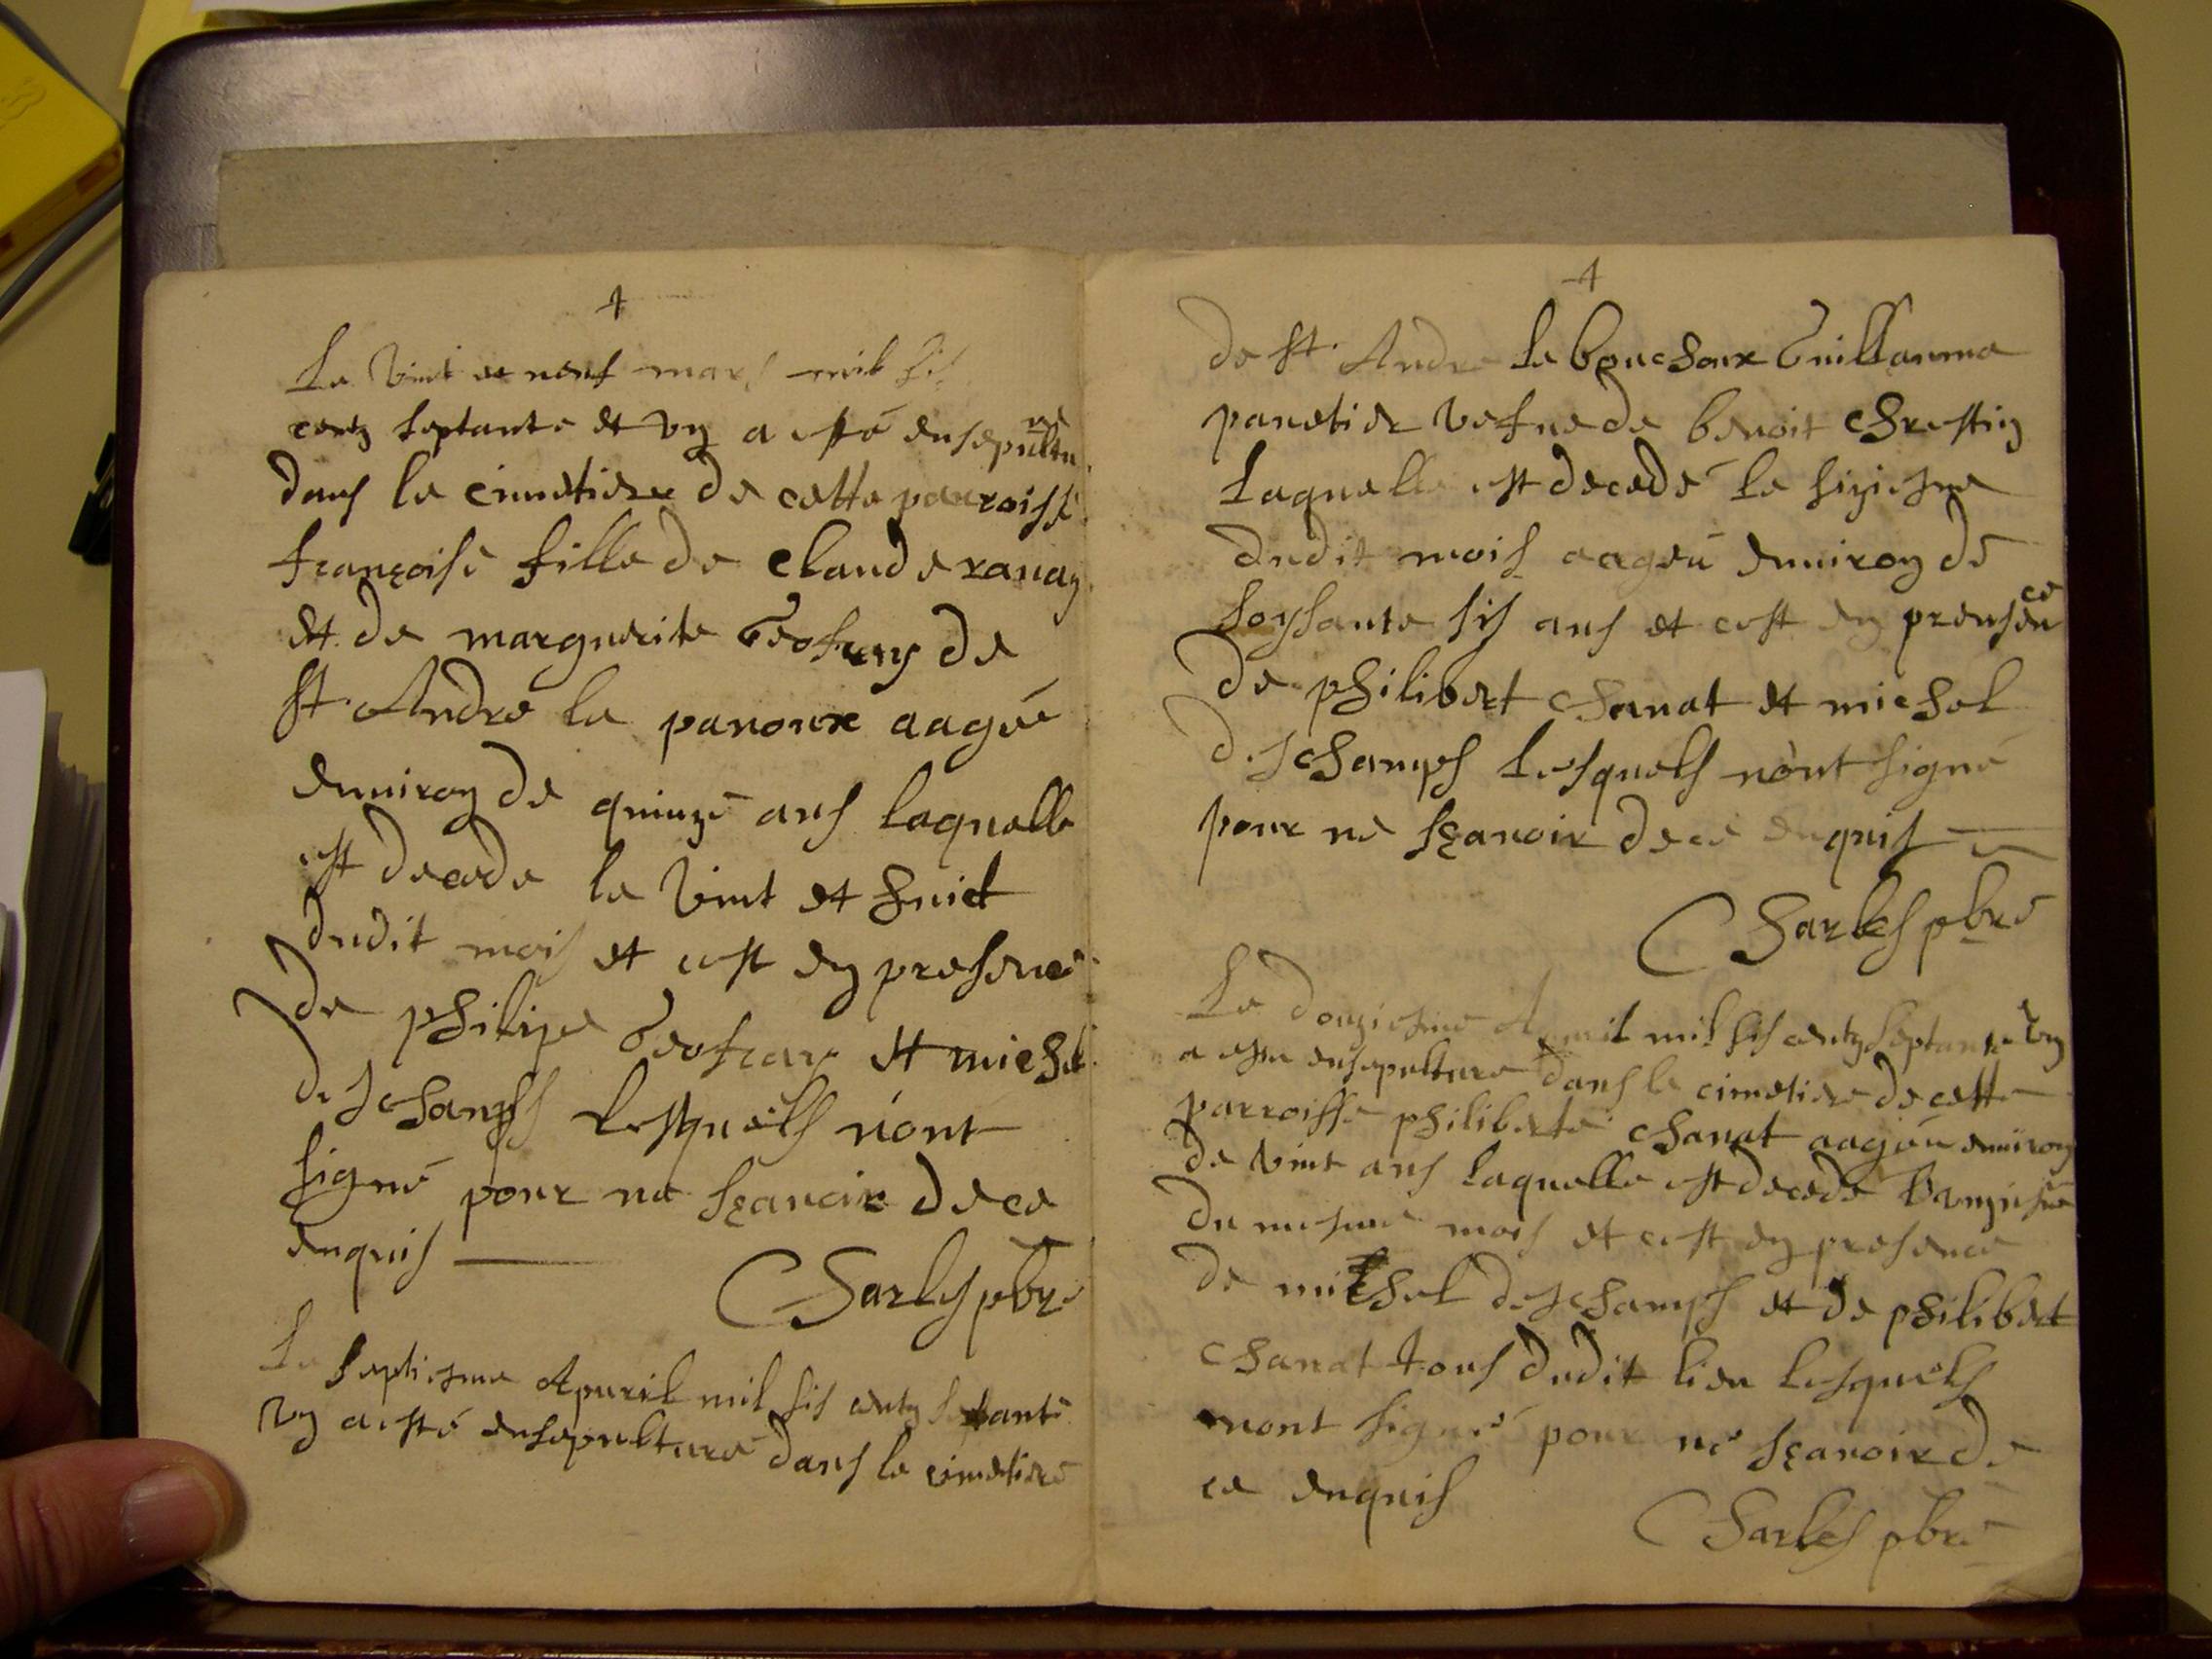 Le vint et neuf mars mil sis
centz septante et vn a esté ensepultu
re
dans le cimetiere de cette parroisse
françoise fille de claude ranay
et de marguerite Geofray de
st André le panoux aagée
enuiron de quinze ans laquelle
est decede le vint et huict
dudit mois et cest en presence
de philipe Geofray et michel
deschamps lesquels n'ont
signé pour ne sçauoir de ce
enquis
Charles pbre
Le septiesme Apuril mil sis centz septante
vn a esté ensepulturé dans le cimetiere
de st Andre le bouchoux Guillauma
panetier vefue de benoit chrestin
laquelle est decedé le siziesme
dudit mois aageé enuiron de
soysante sis ans et cest en presen
ce
de philibert chanat et michel
deschamps lesquels n'ont signé
pour ne sçauoir de ce enquis
Charles pbre
Le douziesme Apuril mil sis centz septante vn
a esté ensepulturé dans le cimetiere de cette
parroisse philiberte chanat aageé enuiron
de vint ans laquelle est decedé l'vnziesme
du mesme mois et cest en presence
de michel deschamps et de philibert
chanat tous dudit lieu lesquels
n'ont signé pour ne sçauoir de
ce enquis
Charles pbre